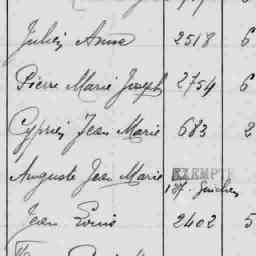 Julien Anna 2518 6
Pierre Marie Joseph 2754 6
Cyprien Jean Marie 683 2
Auguste Jean Marie EXEMPTÉ
187.
Jean Louis 2402 5